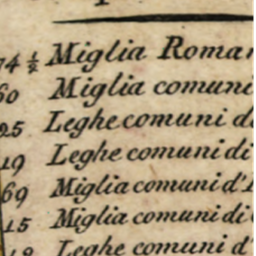 74 ½ Miglia Roman
60 Miglia comune
25 Leghe comuni d
19 Leghe comuni di
69 Miglia comuni d'
15 Miglia comuni di
Leghe comuni d'